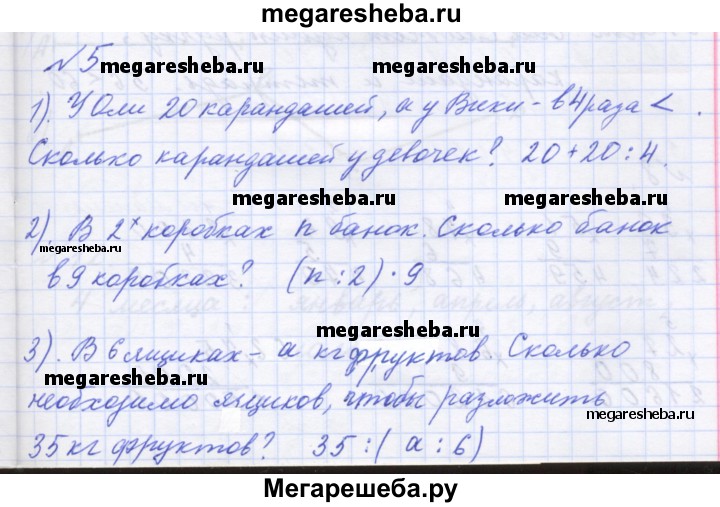 megaresheba.ru
№5 megaresheba.ru megaresheba.ru
1). У Оли 20 карандашей, а у Вики - в 4 раза < .
Сколько карандашей у девочек? 20 + 20 : 4.
megaresheba.ru megaresheba.ru
2). В 2х коробках n банок. Сколько банок
megaresheba.ru
в 9 коробках? (n : 2) · 9
megaresheba.ru
3). В 6 ящиках - а кг фруктов. Сколько
megaresheba.ru
необходимо ящиков, чтобы разложить
megaresheba.ru
35 кг фруктов? 35 : (а : 6)
megaresheba.ru
Мегарешеба.ру